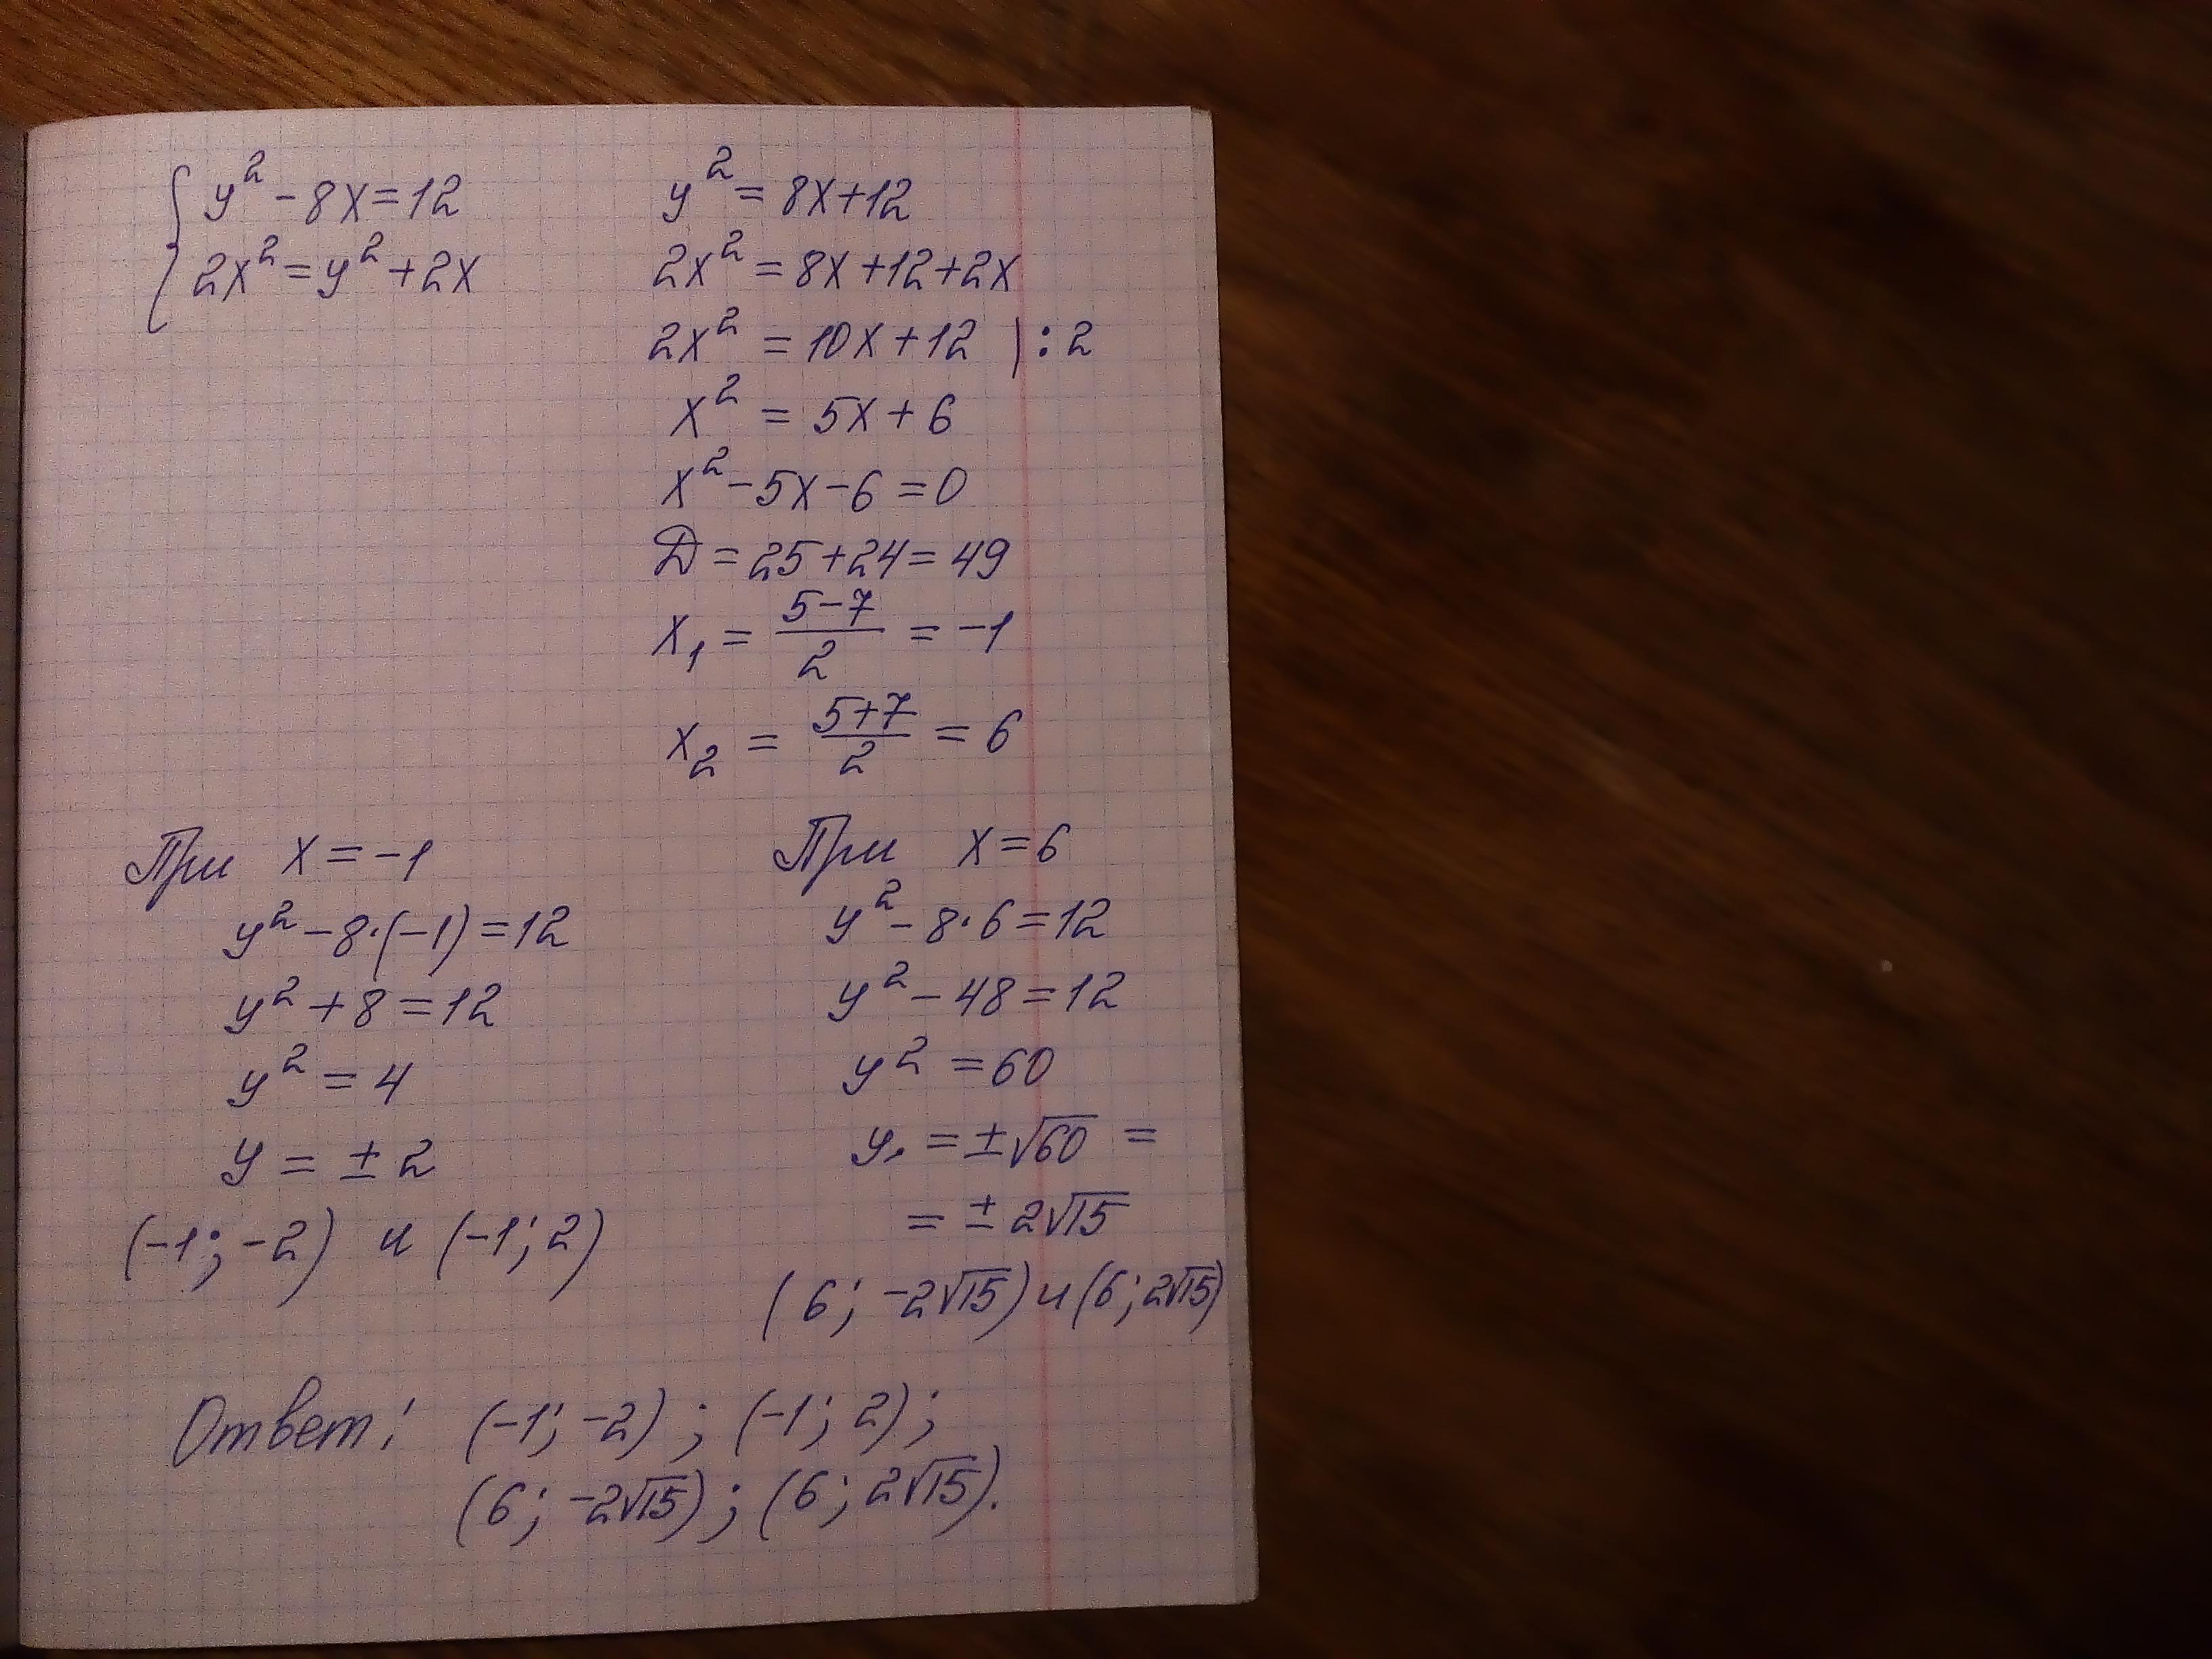 { y² - 8x = 12
2x² = y² + 2x
y² = 8x + 12
2x² = 8x + 12 + 2x
2x² = 10x + 12 | : 2
x² = 5x + 6
x² - 5x - 6 = 0
Д = 25 + 24 = 49
x₁ = (5-7)/2 = -1
x₂ = (5+7)/2 = 6
При x = -1
y² - 8·(-1) = 12
y² + 8 = 12
y² = 4
y = ± 2
(-1; -2) и (-1; 2)
При x = 6
y² - 8·6 = 12
y² - 48 = 12
y² = 60
y = ±√60 =
= ± 2√15
(6; -2√15) и (6; 2√15)
Ответ: (-1; -2); (-1; 2);
(6; -2√15); (6; 2√15).